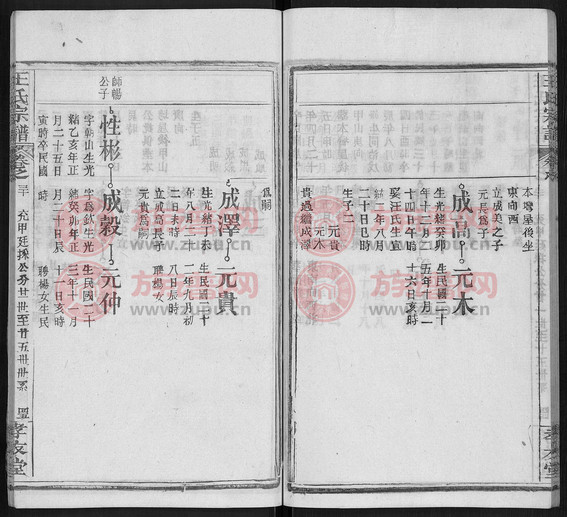 本灣屋後坐
東向西
立成美之子
元長爲子
成高
元木
生光緒癸卯
年十二月二
十四日午時
娶汪氏生宣
統二年八月
二十日巳時
生子二
元貴
元木
貴過繼成澤
生民國二十
五年十月一
十六日亥時
爲嗣
成澤
元貴
生光緒丁未
年八月二十
二日未時
立成高長子
元貴爲嗣
生民國二十
二年九月初
八日辰時
聘楊女
師暢
公子
性彬
成毅
元仲
字朝山生光
緒乙亥年正
月二十五日
寅時卒民國
時
字爲欽生光
緒癸卯年正
月二十日辰
生民國二十
三年十一月
十一日亥時
聘楊女生民
王氏宗譜
卷之
三十
充甲廷採公分廿世至廿五世世系
孝友堂
族譜網
zupu.cn